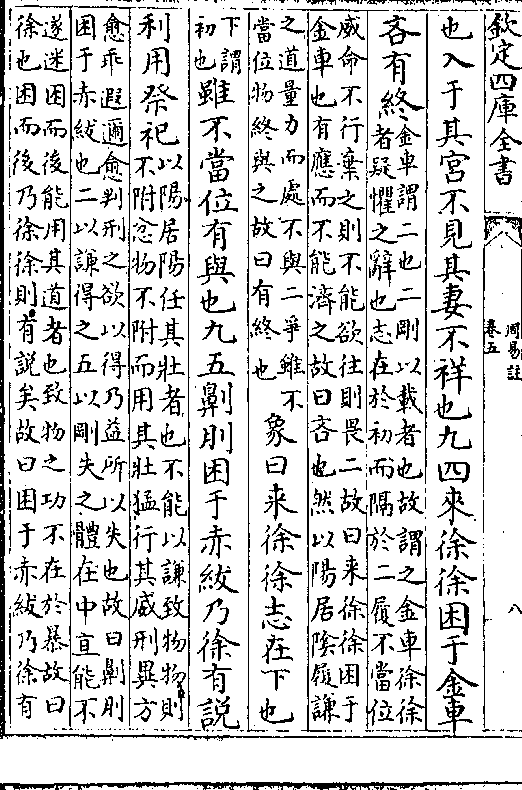 欽定四庫全書
周易註
卷五
八
也入于其宫不見其妻不祥也九四來徐徐困于金車
吝有終
金車謂二也二剛以載者也故謂之金車徐徐
者疑懼之辭也志在於初而隔於二履不當位
威命不行棄之則不能欲往則畏二故曰來徐徐困于
金車也有應而不能濟之故曰吝也然以陽居陰履謙
之道量力而處不與二爭雖不
當位物終與之故曰有終也
象曰來徐徐志在下也
下謂
初也
雖不當位有與也九五劓刖困于赤紱乃徐有説
利用祭祀
以陽居陽任其壯者也不能以謙致物物則
不附忿物不附而用其壯猛行其威刑異方
愈乖遐邇愈判刑之欲以得乃益所以失也故曰劓刖
困于赤紱也二以謙得之五以剛失之體在中直能不
遂迷困而後能用其道者也致物之功不在於暴故曰
徐也困而後乃徐徐則有説矣故曰困于赤紱乃徐有